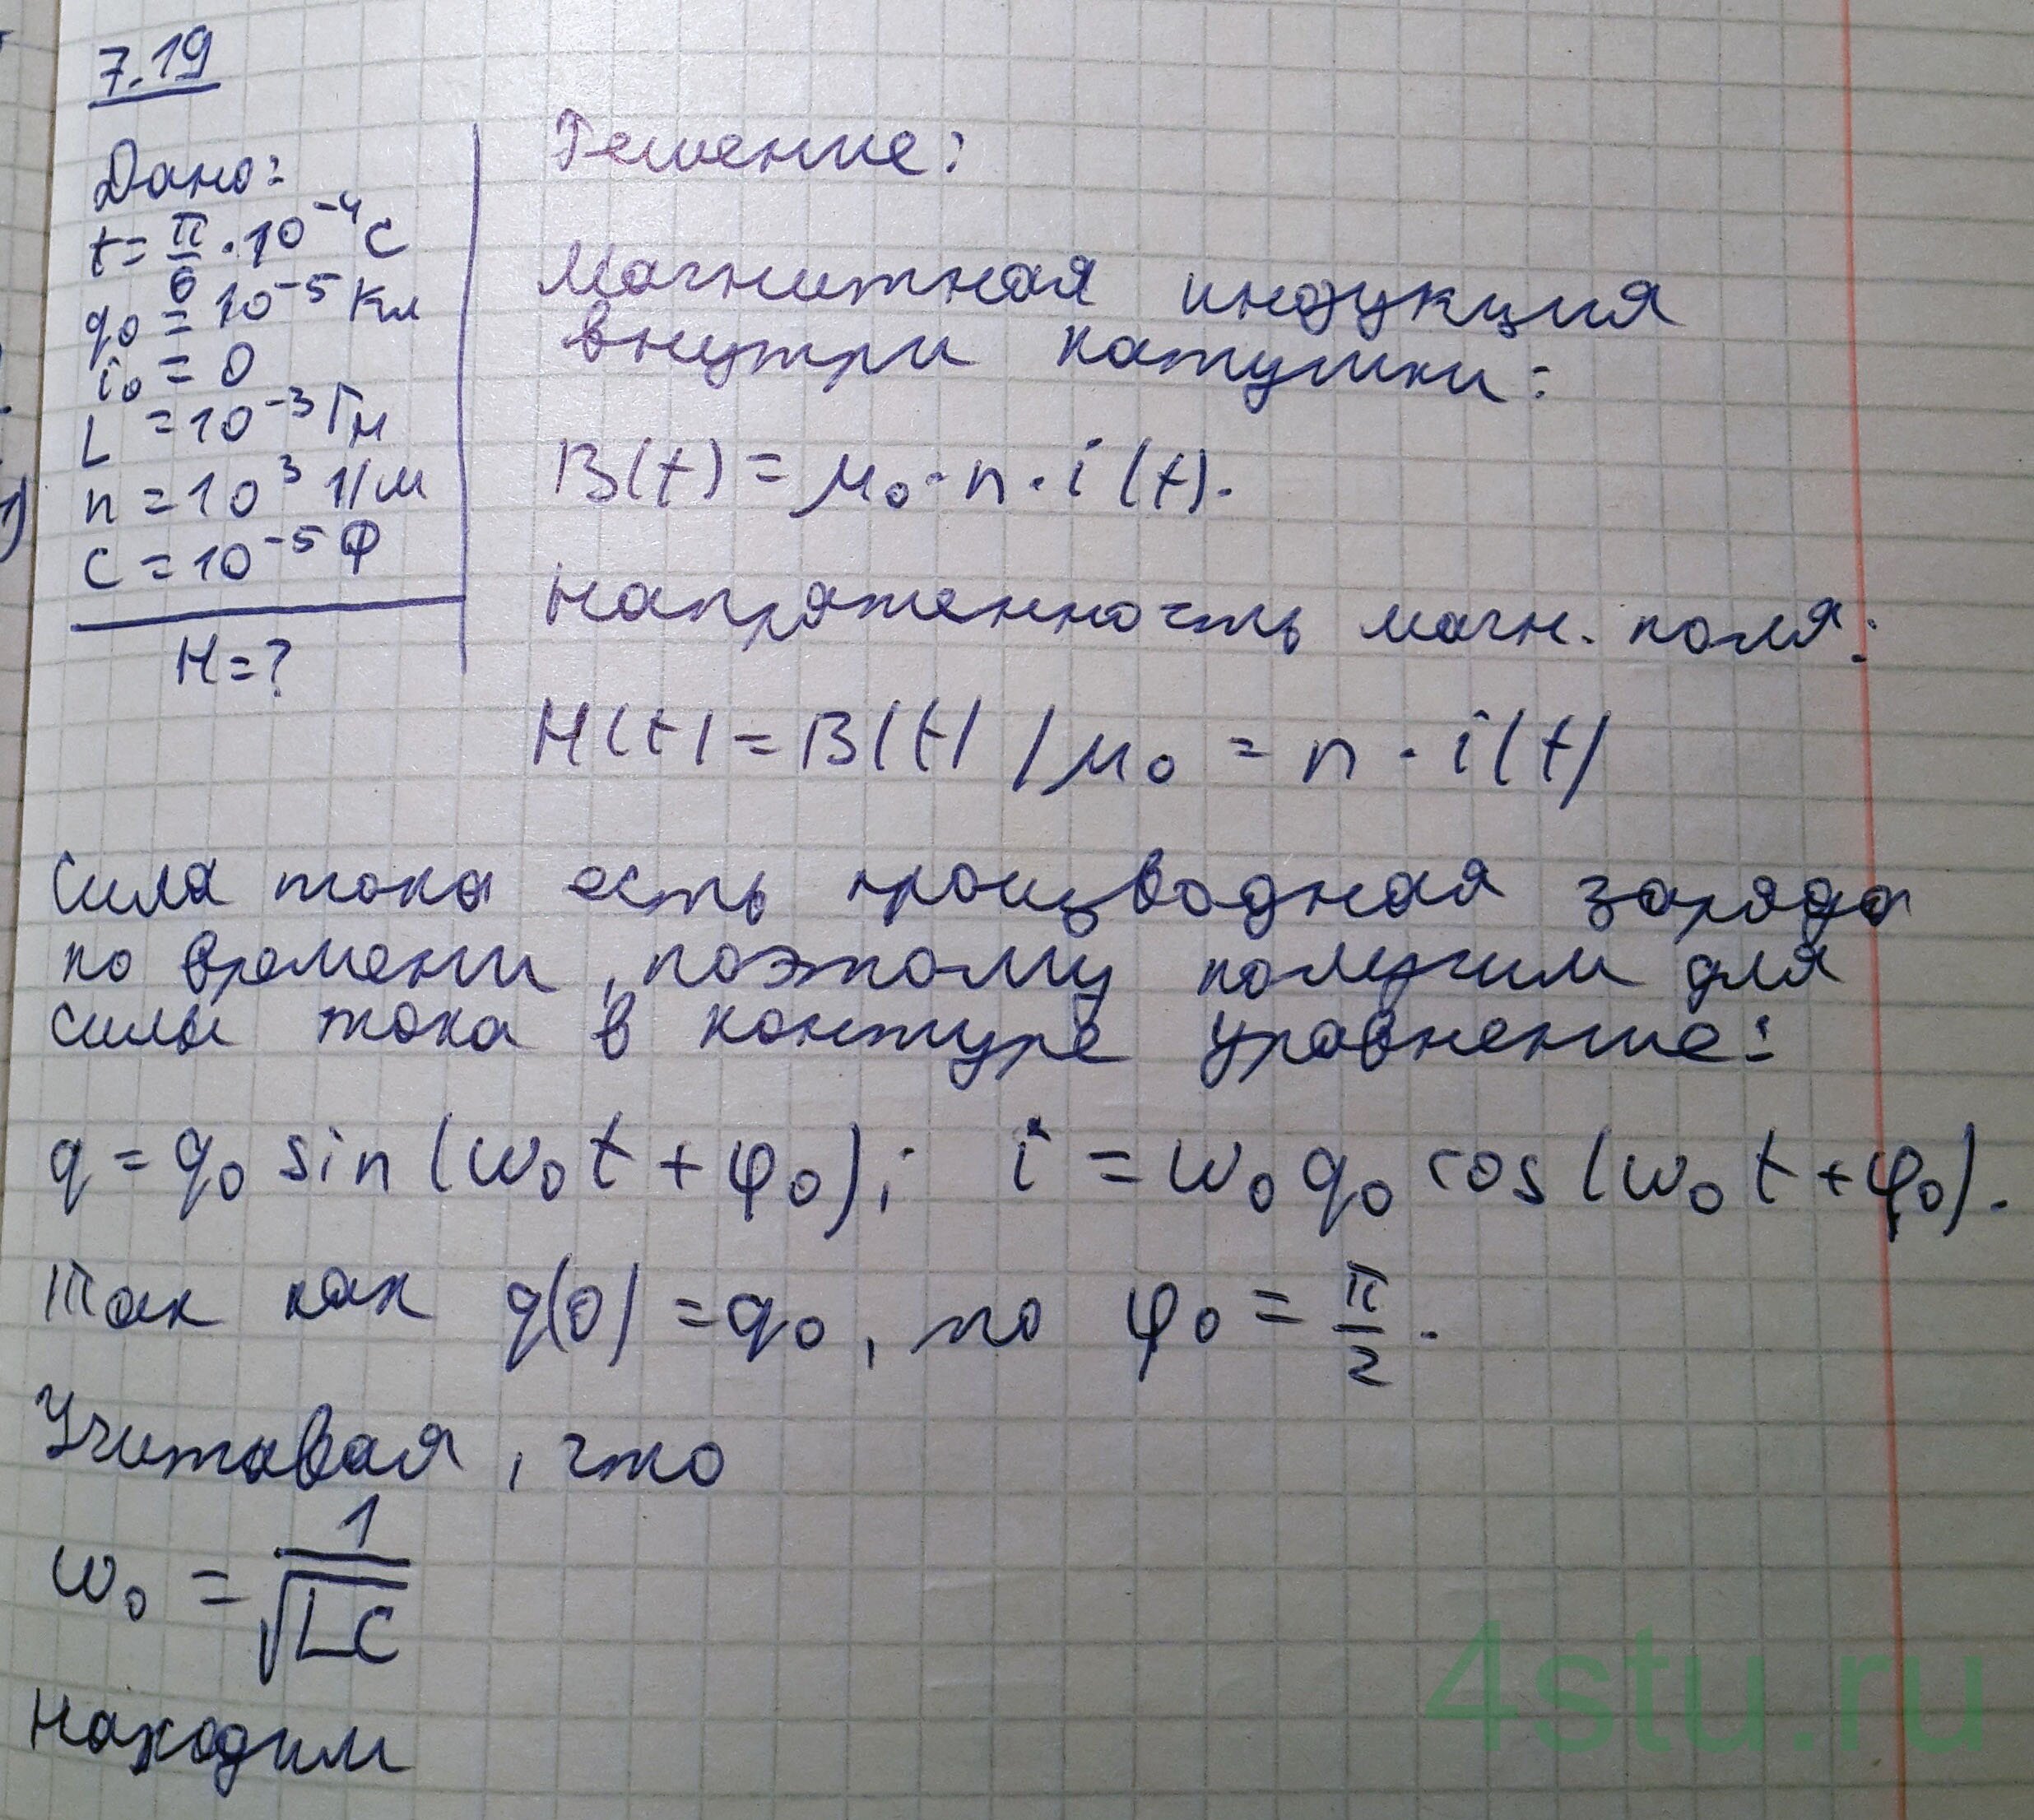 7.19
Дано:
t = π/6 · 10⁻⁴ с
q₀ = 10⁻⁵ Кл
i₀ = 0
L = 10⁻³ Гн
n = 10³ 1/м
C = 10⁻⁵ Ф
H = ?
Решение:
Магнитная индукция
внутри катушки:
B(t) = μ₀ · n · i(t).
Напряженность магн. поля:
H(t) = B(t) / μ₀ = n · i(t)
Сила тока есть производная заряда
по времени, поэтому получим для
силы тока в контуре уравнение:
q = q₀ sin(ω₀t + φ₀); i = ω₀ q₀ cos(ω₀t + φ₀).
Так как q(0) = q₀, то φ₀ = π/2.
Учитавая, что
ω₀ = 1/√LC
Находим
4stu.ru